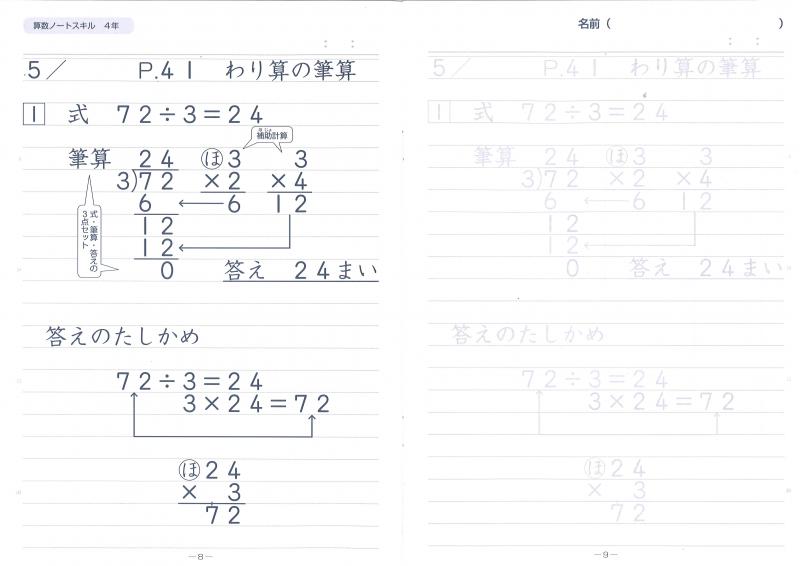 算数ノートスキル 4年
: :
5/ P.41 わり算の筆算
1 式 72÷3=24
補助計算
ほじょ
筆算 24 ほ3 3
3)72 ×2 ×4
6 ← 6 12
12
12 ←
0 答え 24まい
式・筆算・答えの
3点セット
答えのたしかめ
72÷3=24
3×24=72
ほ24
× 3
72
—8—
名前( )
: :
5/ P.41 わり算の筆算
1 式 72÷3=24
筆算 24 ほ3 3
3)72 ×2 ×4
6 ← 6 12
12
12 ←
0 答え 24まい
答えのたしかめ
72÷3=24
3×24=72
ほ24
× 3
72
—9—